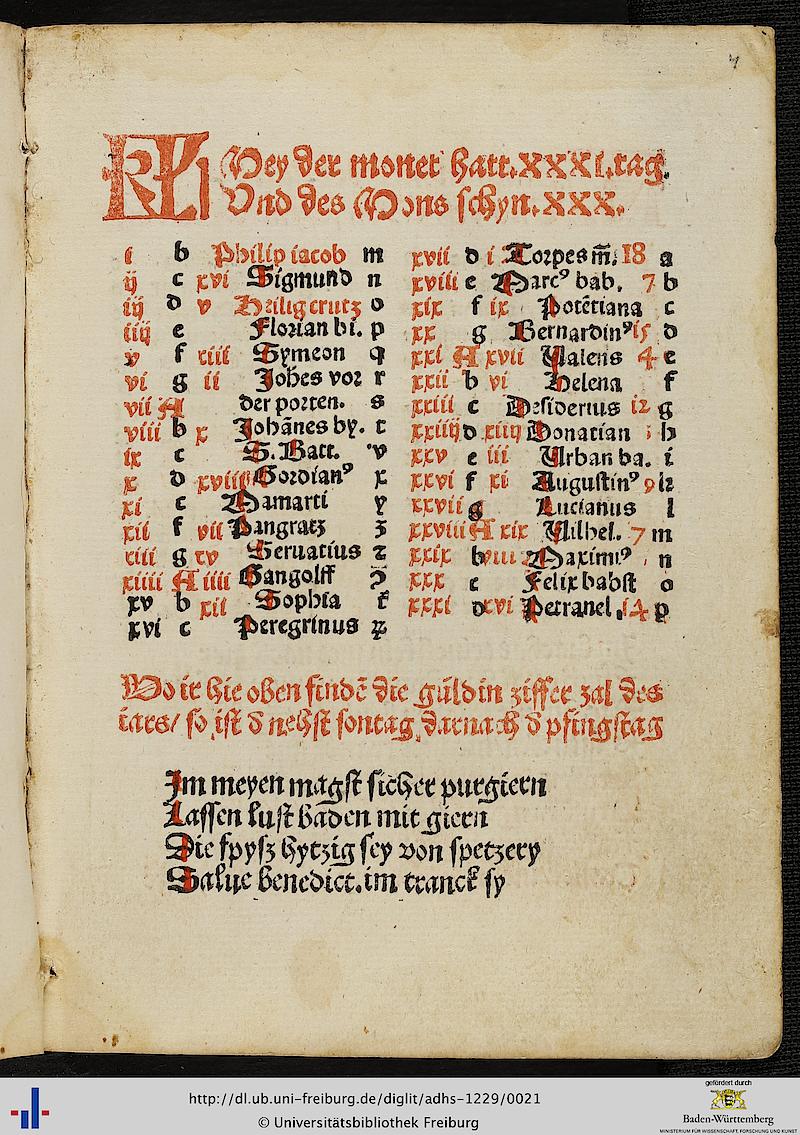 KL Mey der monet hatt.XXXI.tag.
Vnd des Mons schyn.XXX.
i b Philip iacob m
ij c xvi Sigmund n
iij d v Heilig crutz o
iiij e Florian bi. p
v f xiii Symeon q
vi g ii Johes vor r
vii A der porten. s
viii b x Johānes by. t
ix c S. Batt. v
x d xviii Gordianꝰ x
xi e Mamarti y
xii f vii Pangratz z
xiii g xv Seruatius
xiiii A iiii Gangolff
xv b xii Sophia
xvi c Peregrinus
xvii d i Torpes m̄. 18 a
xviii e Marcꝰ bab. 7 b
xix f ix Potētiana c
xx g Bernardinꝰ 15 d
xxi A xvii Valens 4 e
xxii b vi Helena f
xxiii c Desiderius 12 g
xxiiij d xiiij Donatian h
xxv e iii Vrban ba. i
xxvi f xi Augustinꝰ 9 k
xxvii g Lucianus l
xxviii A xix Wilhel. 7 m
xxix b viii Maximiꝰ n
xxx c Felix babst o
xxxi d xvi Petranel. 14 p
Wo ir hie oben findē die guldin ziffer zal des
iars/ so ist d nehst sontag darnach d pfingstag
Im meyen magst sicher purgiern
Lassen lust baden mit giern
Die spysz hytzig sey von spetzery
Salue benedict. im tranck sy
http://dl.ub.uni-freiburg.de/diglit/adhs-1229/0021
© Universitätsbibliothek Freiburg
gefördert durch
Baden-Württemberg
MINISTERIUM FÜR WISSENSCHAFT, FORSCHUNG UND KUNST